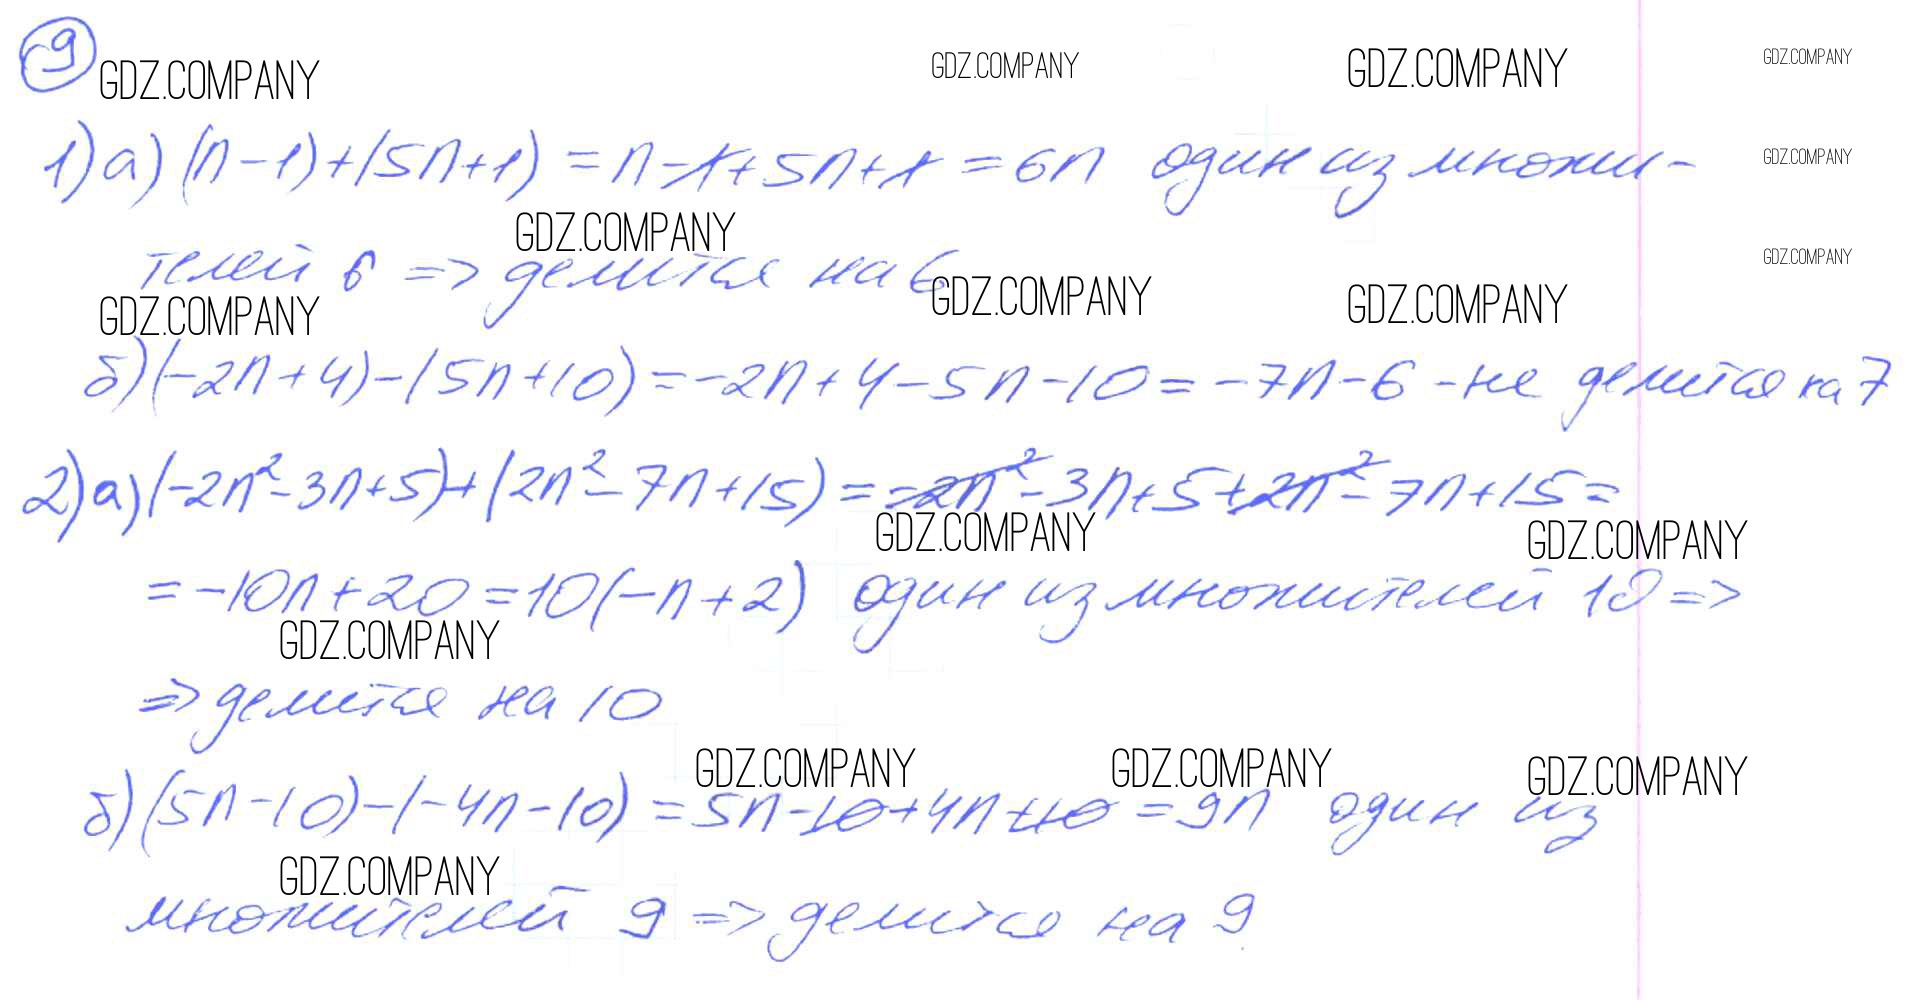 9
GDZ.COMPANY GDZ.COMPANY GDZ.COMPANY GDZ.COMPANY
1) а) (n-1)+(5n+1) = n-1+5n+1 = 6n один из множи-
GDZ.COMPANY
GDZ.COMPANY
телей 6 => делится на 6
GDZ.COMPANY
GDZ.COMPANY GDZ.COMPANY GDZ.COMPANY
б) (-2n+4)-(5n+10) = -2n+4-5n-10 = -7n-6 - не делится на 7
2) а) (-2n²-3n+5)+(2n²-7n+15) = -2n²-3n+5+2n²-7n+15 =
GDZ.COMPANY GDZ.COMPANY
= -10n+20 = 10(-n+2) один из множителей 10 =>
GDZ.COMPANY
=> делится на 10
GDZ.COMPANY GDZ.COMPANY GDZ.COMPANY
б) (5n-10)-(-4n-10) = 5n-10+4n+10 = 9n один из
GDZ.COMPANY
множителей 9 => делится на 9